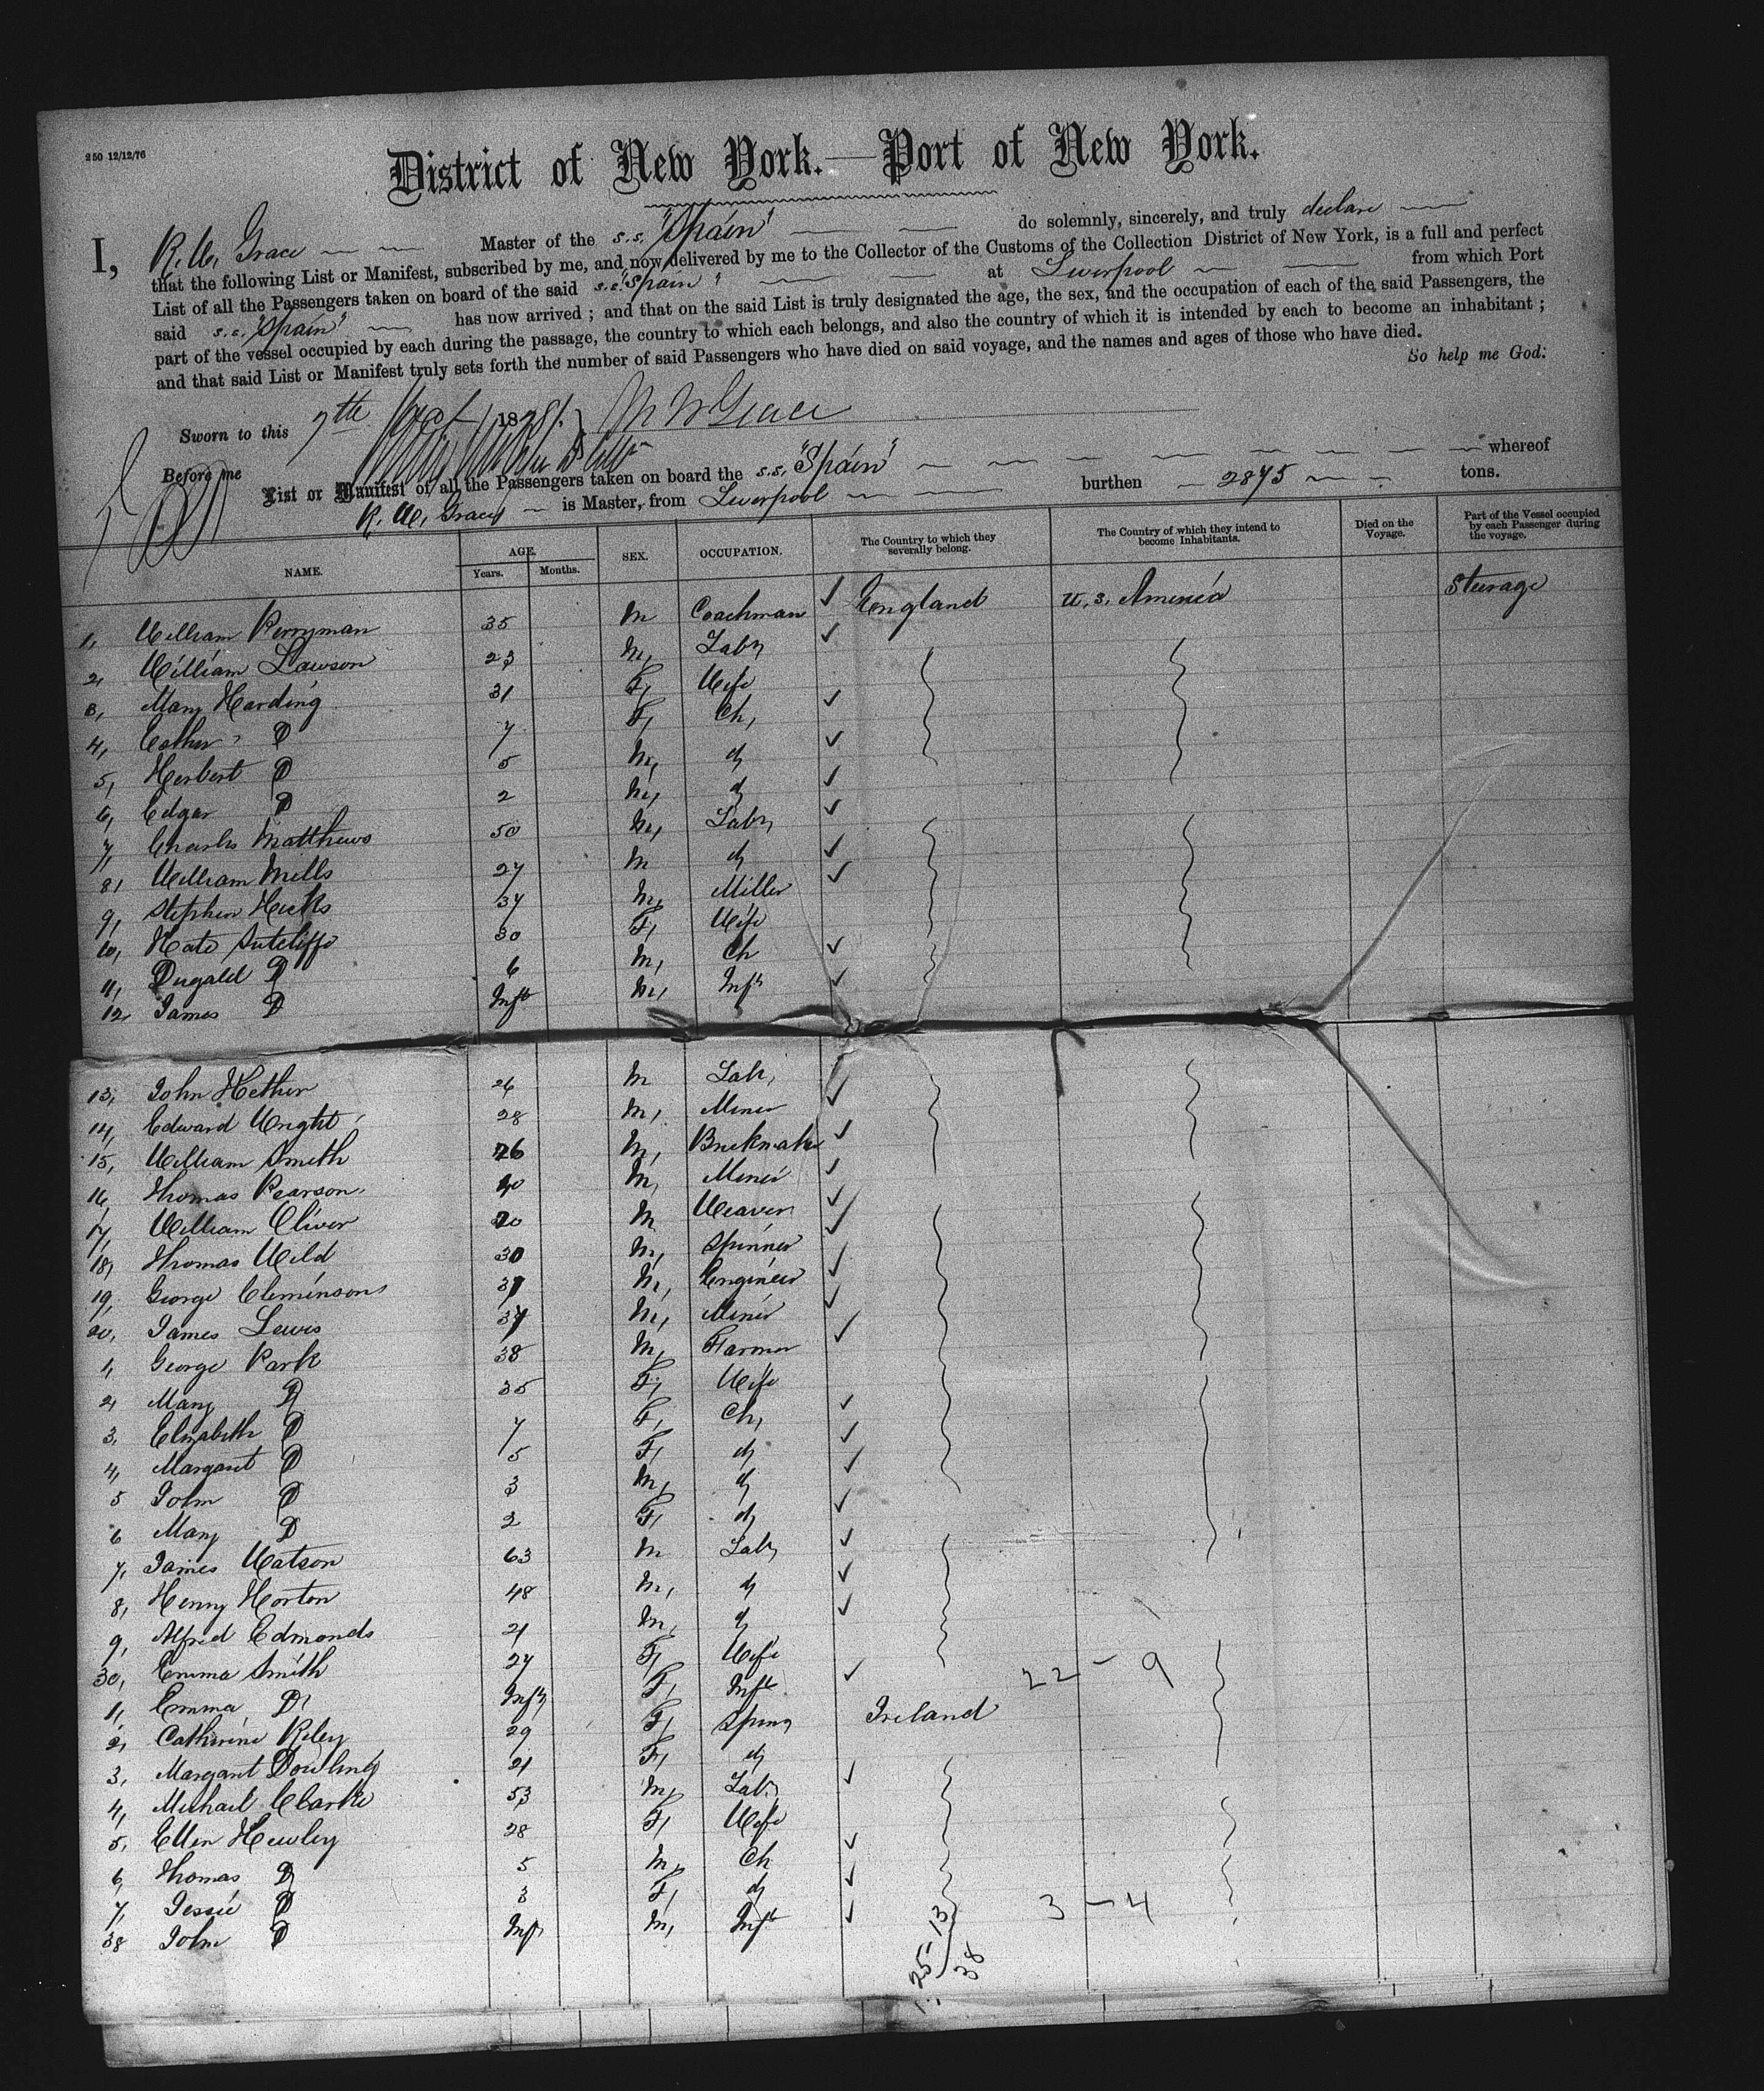 250 12/12/76
District of New York.—Port of New York.
I, R. W. Grace Master of the s.s. "Spain" do solemnly, sincerely, and truly declare
that the following List or Manifest, subscribed by me, and now delivered by me to the Collector of the Customs of the Collection District of New York, is a full and perfect
List of all the Passengers taken on board of the said s.s. "Spain" at Liverpool from which Port
said s.s. "Spain" has now arrived ; and that on the said List is truly designated the age, the sex, and the occupation of each of the said Passengers, the
part of the vessel occupied by each during the passage, the country to which each belongs, and also the country of which it is intended by each to become an inhabitant ;
and that said List or Manifest truly sets forth the number of said Passengers who have died on said voyage, and the names and ages of those who have died.
So help me God:
Sworn to this 7th 187 R W Grace
Before me
List or Manifest of all the Passengers taken on board the s.s. "Spain" whereof
R. W. Grace is Master, from Liverpool burthen 2875 tons.
NAME. AGE. Years. Months. SEX. OCCUPATION. The Country to which they severally belong. The Country of which they intend to become Inhabitants. Died on the Voyage. Part of the Vessel occupied by each Passenger during the voyage.
1, William Perryman 35 M Coachman ✓ England U. S. America Steerage
2, William Lawson 23 M, Labr ✓
3, Mary Harding 31 F, Wife
4, Esther D 7 F, Ch, ✓
5, Herbert D 5 M, d ✓
6, Edgar D 2 M, d ✓
7, Charles Matthews 50 M, Labr ✓
8, William Mills 27 M d ✓
9, Stephen Hicks 37 M, Miller ✓
10, Kate Sutcliffe 30 F, Wife
11, Dugald D 6 M, Ch ✓
12, James D Inft M, Inft ✓
13, John Hether 26 M Labr, ✓
14, Edward Wright 28 M, Miner ✓
15, William Smith 26 M, Brickmaker ✓
16, Thomas Pearson 40 M, Miner ✓
17, William Oliver 20 M Weaver ✓
18, Thomas Wild 30 M, Spinner ✓
19, George Cleminson 37 M, Engineer ✓
20, James Lewis 37 M, Miner ✓
1, George Park 38 M, Farmer ✓
2, Mary D 35 F, Wife
3, Elizabeth D 7 F, Ch, ✓
4, Margaret D 5 F, d ✓
5 John D 3 M, d ✓
6 Mary D 2 F, d ✓
7, James Watson 63 M Labr ✓
8, Henry Horton 48 M, d ✓
9, Alfred Edmonds 21 M, d ✓
30, Emma Smith 27 F, Wife
1, Emma D Inft F, Inft ✓ 22 – 9
2, Catherine Riley 29 F, Spinr Ireland
3, Margaret Dowling 21 F, d
4, Michael Clarke 53 M, Labr ✓
5, Ellen Hewley 28 F, Wife
6, Thomas D 5 M, Ch ✓
7, Jessie D 3 F, d ✓
38 John D Inft M, Inft ✓ 3 – 4
25–13
38